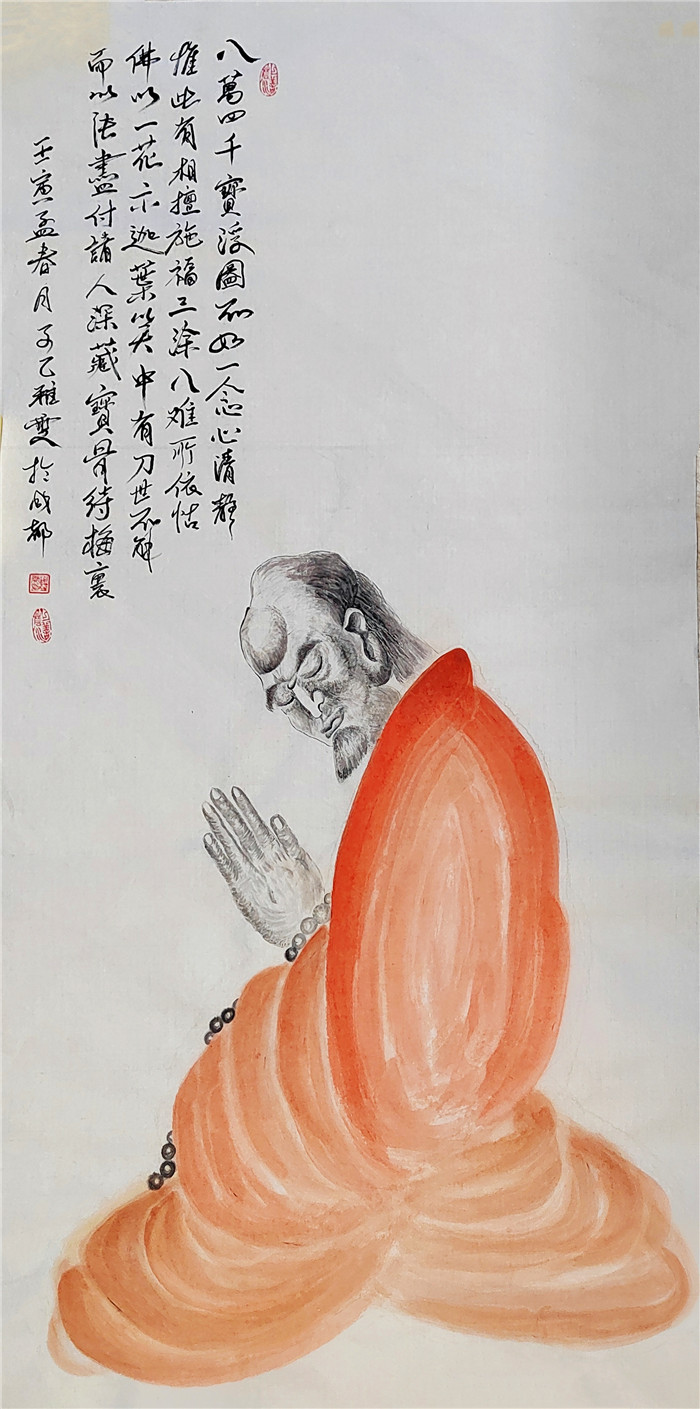 八萬四千寶浮圖不如一念心清靜
惟此有相擅施福三塗八难所依怙
佛以一花示迦葉笑中有刀世不解
而以法盡付諸人深藏寶骨待梅裏
壬寅孟春月子乙雅雯於成都